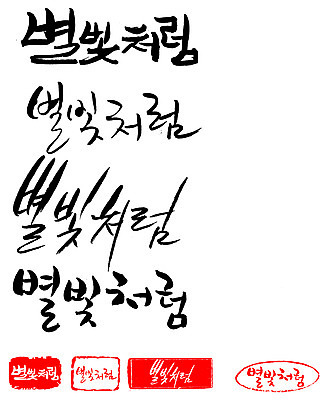 별빛처럼
별빛처럼
별빛처럼
별빛처럼
별빛처럼 별빛처럼 별빛처럼 별빛처럼